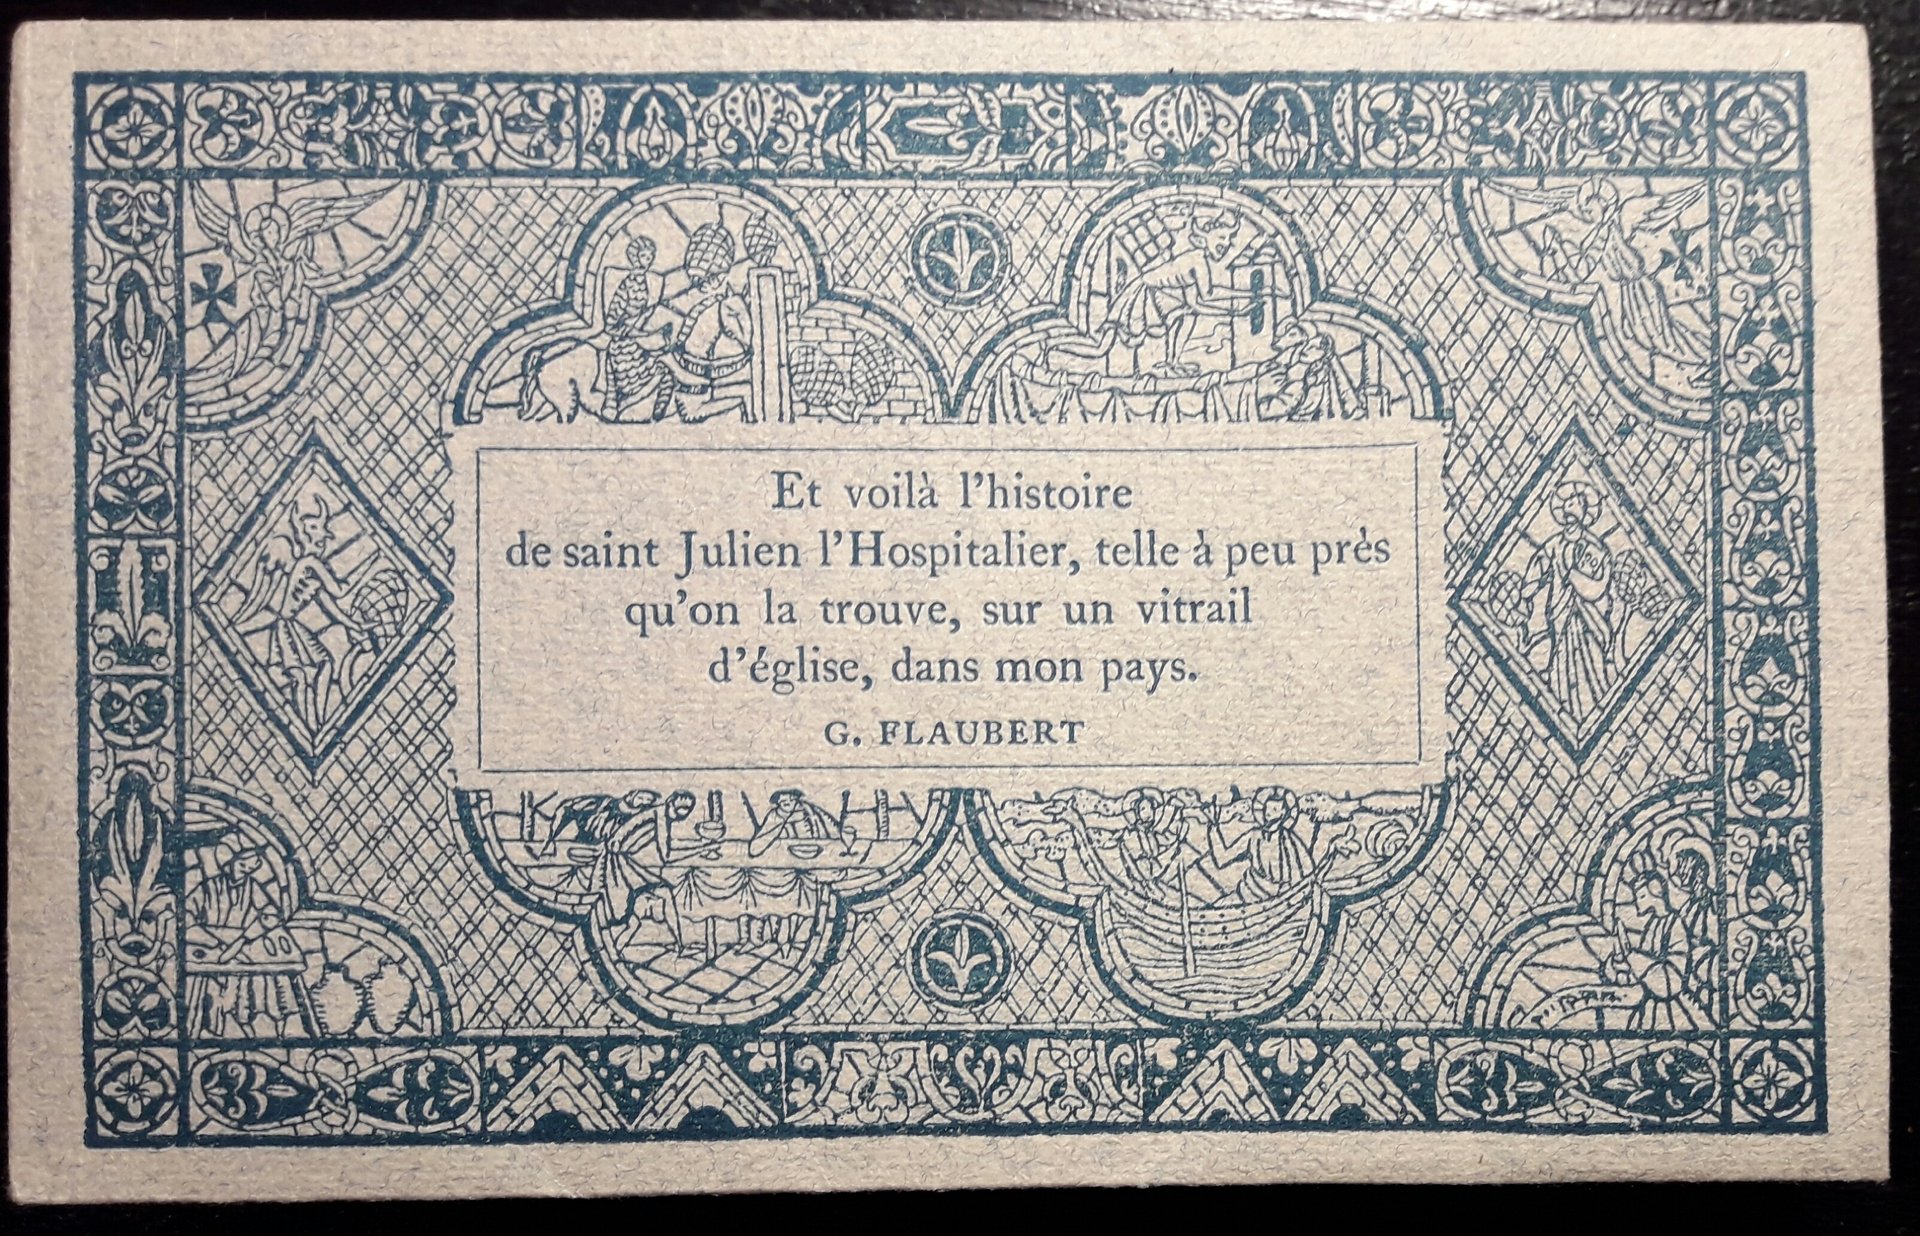 Et voilà l'histoire
de saint Julien l'Hospitalier, telle à peu près
qu'on la trouve, sur un vitrail
d'église, dans mon pays.
G. FLAUBERT